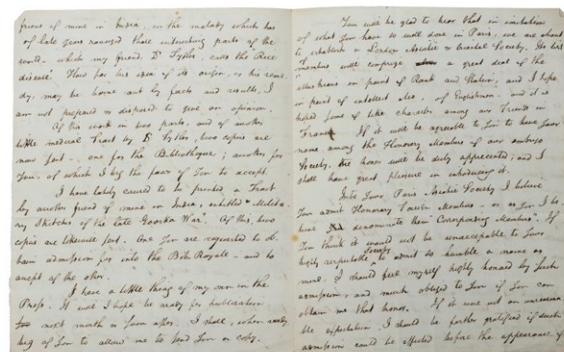 friend of mine in India, on the malady which has
of late years ravaged those interesting parts of the
world - which my friend, Dr Tytler, calls the Rice
disease. How far his idea of its origin, or his reme-
dy, may be borne out by facts and results, I
am not prepared or disposed to give an opinion.
Of this work in two parts, and of another
little medical Tract by Dr Tytler, two copies are
now sent - one for the Bibliotheque; another for
You, of which I beg the favor of You to accept.
I have lately caused to be printed a Tract
by another friend of mine in India, entitled "Milita-
ry Sketches of the late Goorka War". Of this, two
copies are likewise sent. One You are requested to ob-
tain admission for into the Bib. Royale - and to
accept of the other.
I have a little thing of my own in the
Press. It will I hope be ready for publication
next month or soon after. I shall, when ready
beg of You to allow me to send You a copy.
You will be glad to hear that in imitation
of what You have so well done in Paris, we are about
to establish a London Asiatic Society. Its list
of members will comprise a great deal of the
illustrious in point of Rank and Station, and I hope
in point of intellect also, of Englishmen - and it is
hoped some of like character among our Friends in
France. If it will be agreeable to You to have Your
name among the Honorary Members of our embryo
Society, the honor will be duly appreciated; and I
shall have great pleasure in introducing it.
Into Your Paris Asiatic Society I believe
You admit Honorary Foreign Members - or as You I be-
lieve denominate them "Corresponding Members". If
You think it would not be unacceptable to Your
highly respectable Society to admit so humble a name as
mine, I should feel myself highly honored by such
admission, and much obliged to You if You can
obtain me that honor. If it were not an unreasona-
ble expectation I should be farther gratified if such
admission could be effected before the appearance of